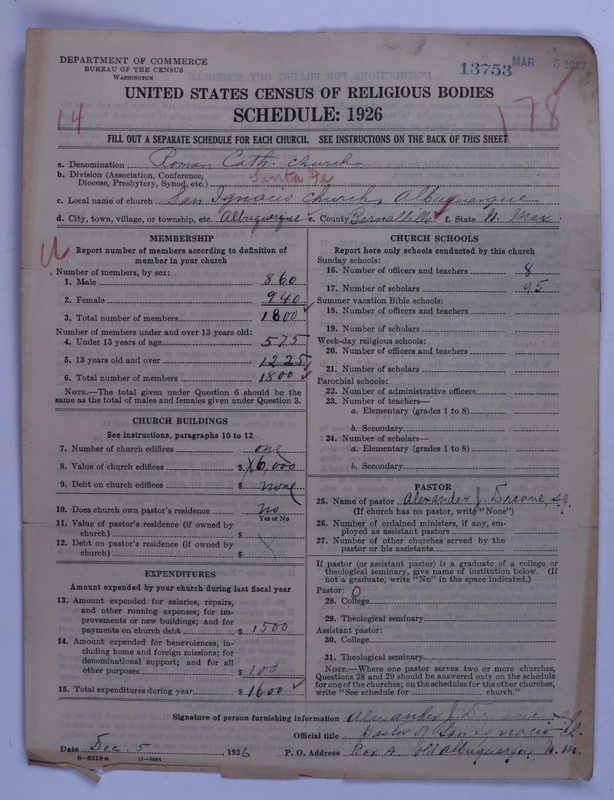 DEPARTMENT OF COMMERCE
BUREAU OF THE CENSUS
WASHINGTON
13753 MAR 5 1927
UNITED STATES CENSUS OF RELIGIOUS BODIES
SCHEDULE: 1926
14
178
FILL OUT A SEPARATE SCHEDULE FOR EACH CHURCH. SEE INSTRUCTIONS ON THE BACK OF THIS SHEET
a. Denomination Roman Cath. Church
b. Division (Association, Conference, Diocese, Presbytery, Synod, etc.) Santa Fe
c. Local name of church San Ignacio Church, Albuquerque
d. City, town, village, or township, etc. Albuquerque e. County Bernallillo f. State N. Mex.
MEMBERSHIP
Report number of members according to definition of
member in your church
Number of members, by sex:
1. Male 860
2. Female 940
3. Total number of members 1800
Number of members under and over 13 years old:
4. Under 13 years of age 575
5. 13 years old and over 1225
6. Total number of members 1800
NOTE.—The total given under Question 6 should be
same as the total of males and females given under Question 3.
CHURCH BUILDINGS
See instructions, paragraphs 10 to 12
7. Number of church edifices one
8. Value of church edifices $ 6,000
9. Debt on church edifices $ none
10. Does church own pastor's residence no
Yes or No
11. Value of pastor's residence (if owned by
church) $
12. Debt on pastor's residence (if owned by
church) $
EXPENDITURES
Amount expended by your church during last fiscal year
13. Amount expended for salaries, repairs,
and other running expenses; for im-
provements or new buildings; and for
payments on church debt $ 1500
14. Amount expended for benevolences, in-
cluding home and foreign missions; for
denominational support; and for all
other purposes $ 100
15. Total expenditures during year $ 1600
CHURCH SCHOOLS
Report here only schools conducted by this church
Sunday schools:
16. Number of officers and teachers 8
17. Number of scholars 95
Summer vacation Bible schools:
18. Number of officers and teachers
19. Number of scholars
Week-day religious schools:
20. Number of officers and teachers
21. Number of scholars
Parochial schools:
22. Number of administrative officers
23. Number of teachers—
a. Elementary (grades 1 to 8)
b. Secondary
24. Number of scholars—
a. Elementary (grades 1 to 8)
b. Secondary
PASTOR
25. Name of pastor Alexander J. S.J.
(If church has no pastor, write "None")
26. Number of ordained ministers, if any, em-
ployed as assistant pastors
27. Number of other churches served by the
pastor or his assistants
If pastor (or assistant pastor) is a graduate of a college or
theological seminary, give name of institution below. (If
not a graduate, write "No" in the space indicated.)
Pastor:
28. College
29. Theological seminary
Assistant pastor:
30. College
31. Theological seminary
NOTE.—Where one pastor serves two or more churches,
Questions 28 and 29 should be answered only on the schedule
for one of the churches; on the schedules for the other churches,
write "See schedule for church."
Signature of person furnishing information Alexander J. S.J.
Official title Pastor of San Ignacio Ch.
Date Dec. 5, 1926 P. O. Address Box A. Old Albuquerque N. M.
8—5318a 11—9084